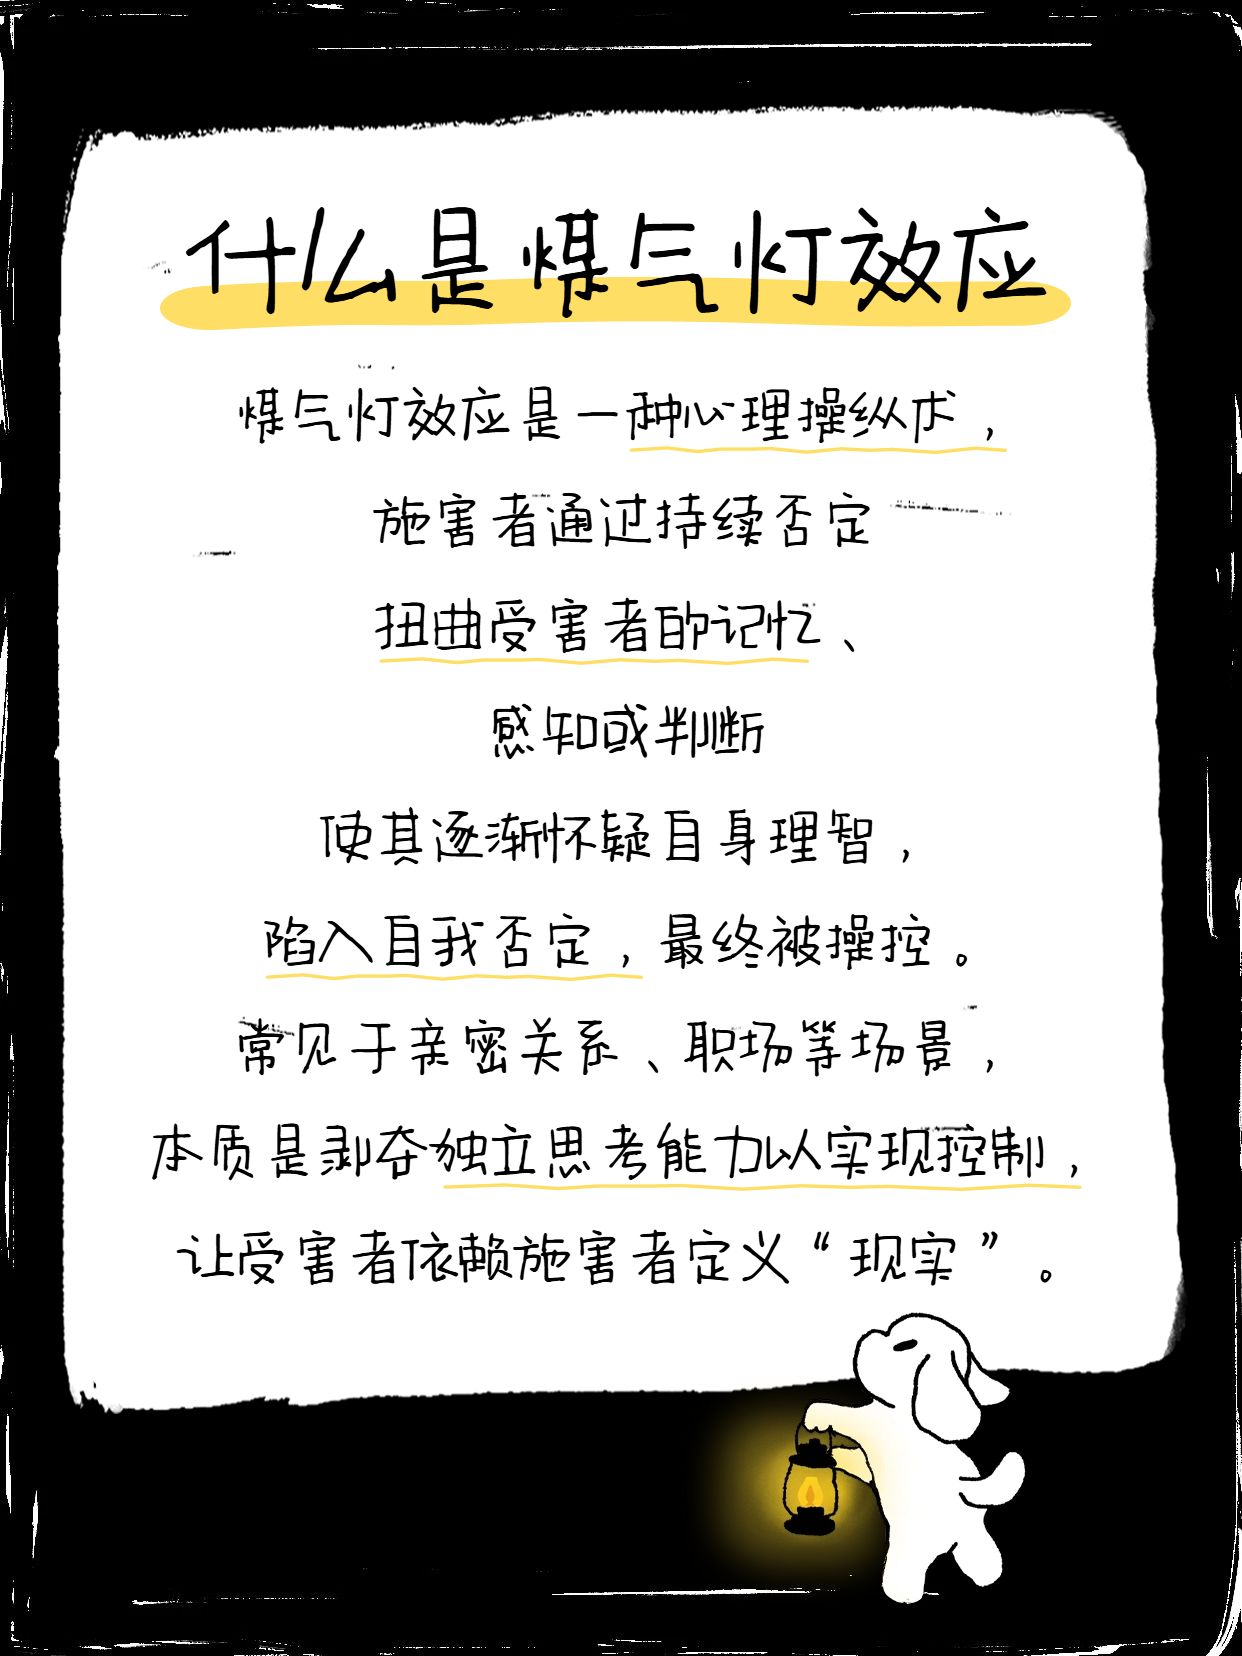 什么是煤气灯效应
煤气灯效应是一种心理操纵术，
施害者通过持续否定
扭曲受害者的记忆、
感知或判断
使其逐渐怀疑自身理智，
陷入自我否定，最终被操控。
常见于亲密关系、职场等场景，
本质是剥夺独立思考能力以实现控制，
让受害者依赖施害者定义“现实”。